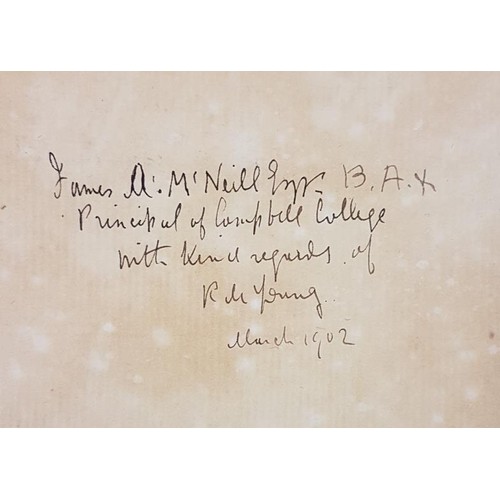 James A. McNeill Esqr. B.A. &
Principal of Campbell College
with Kind regards of
R M Young
March 1902